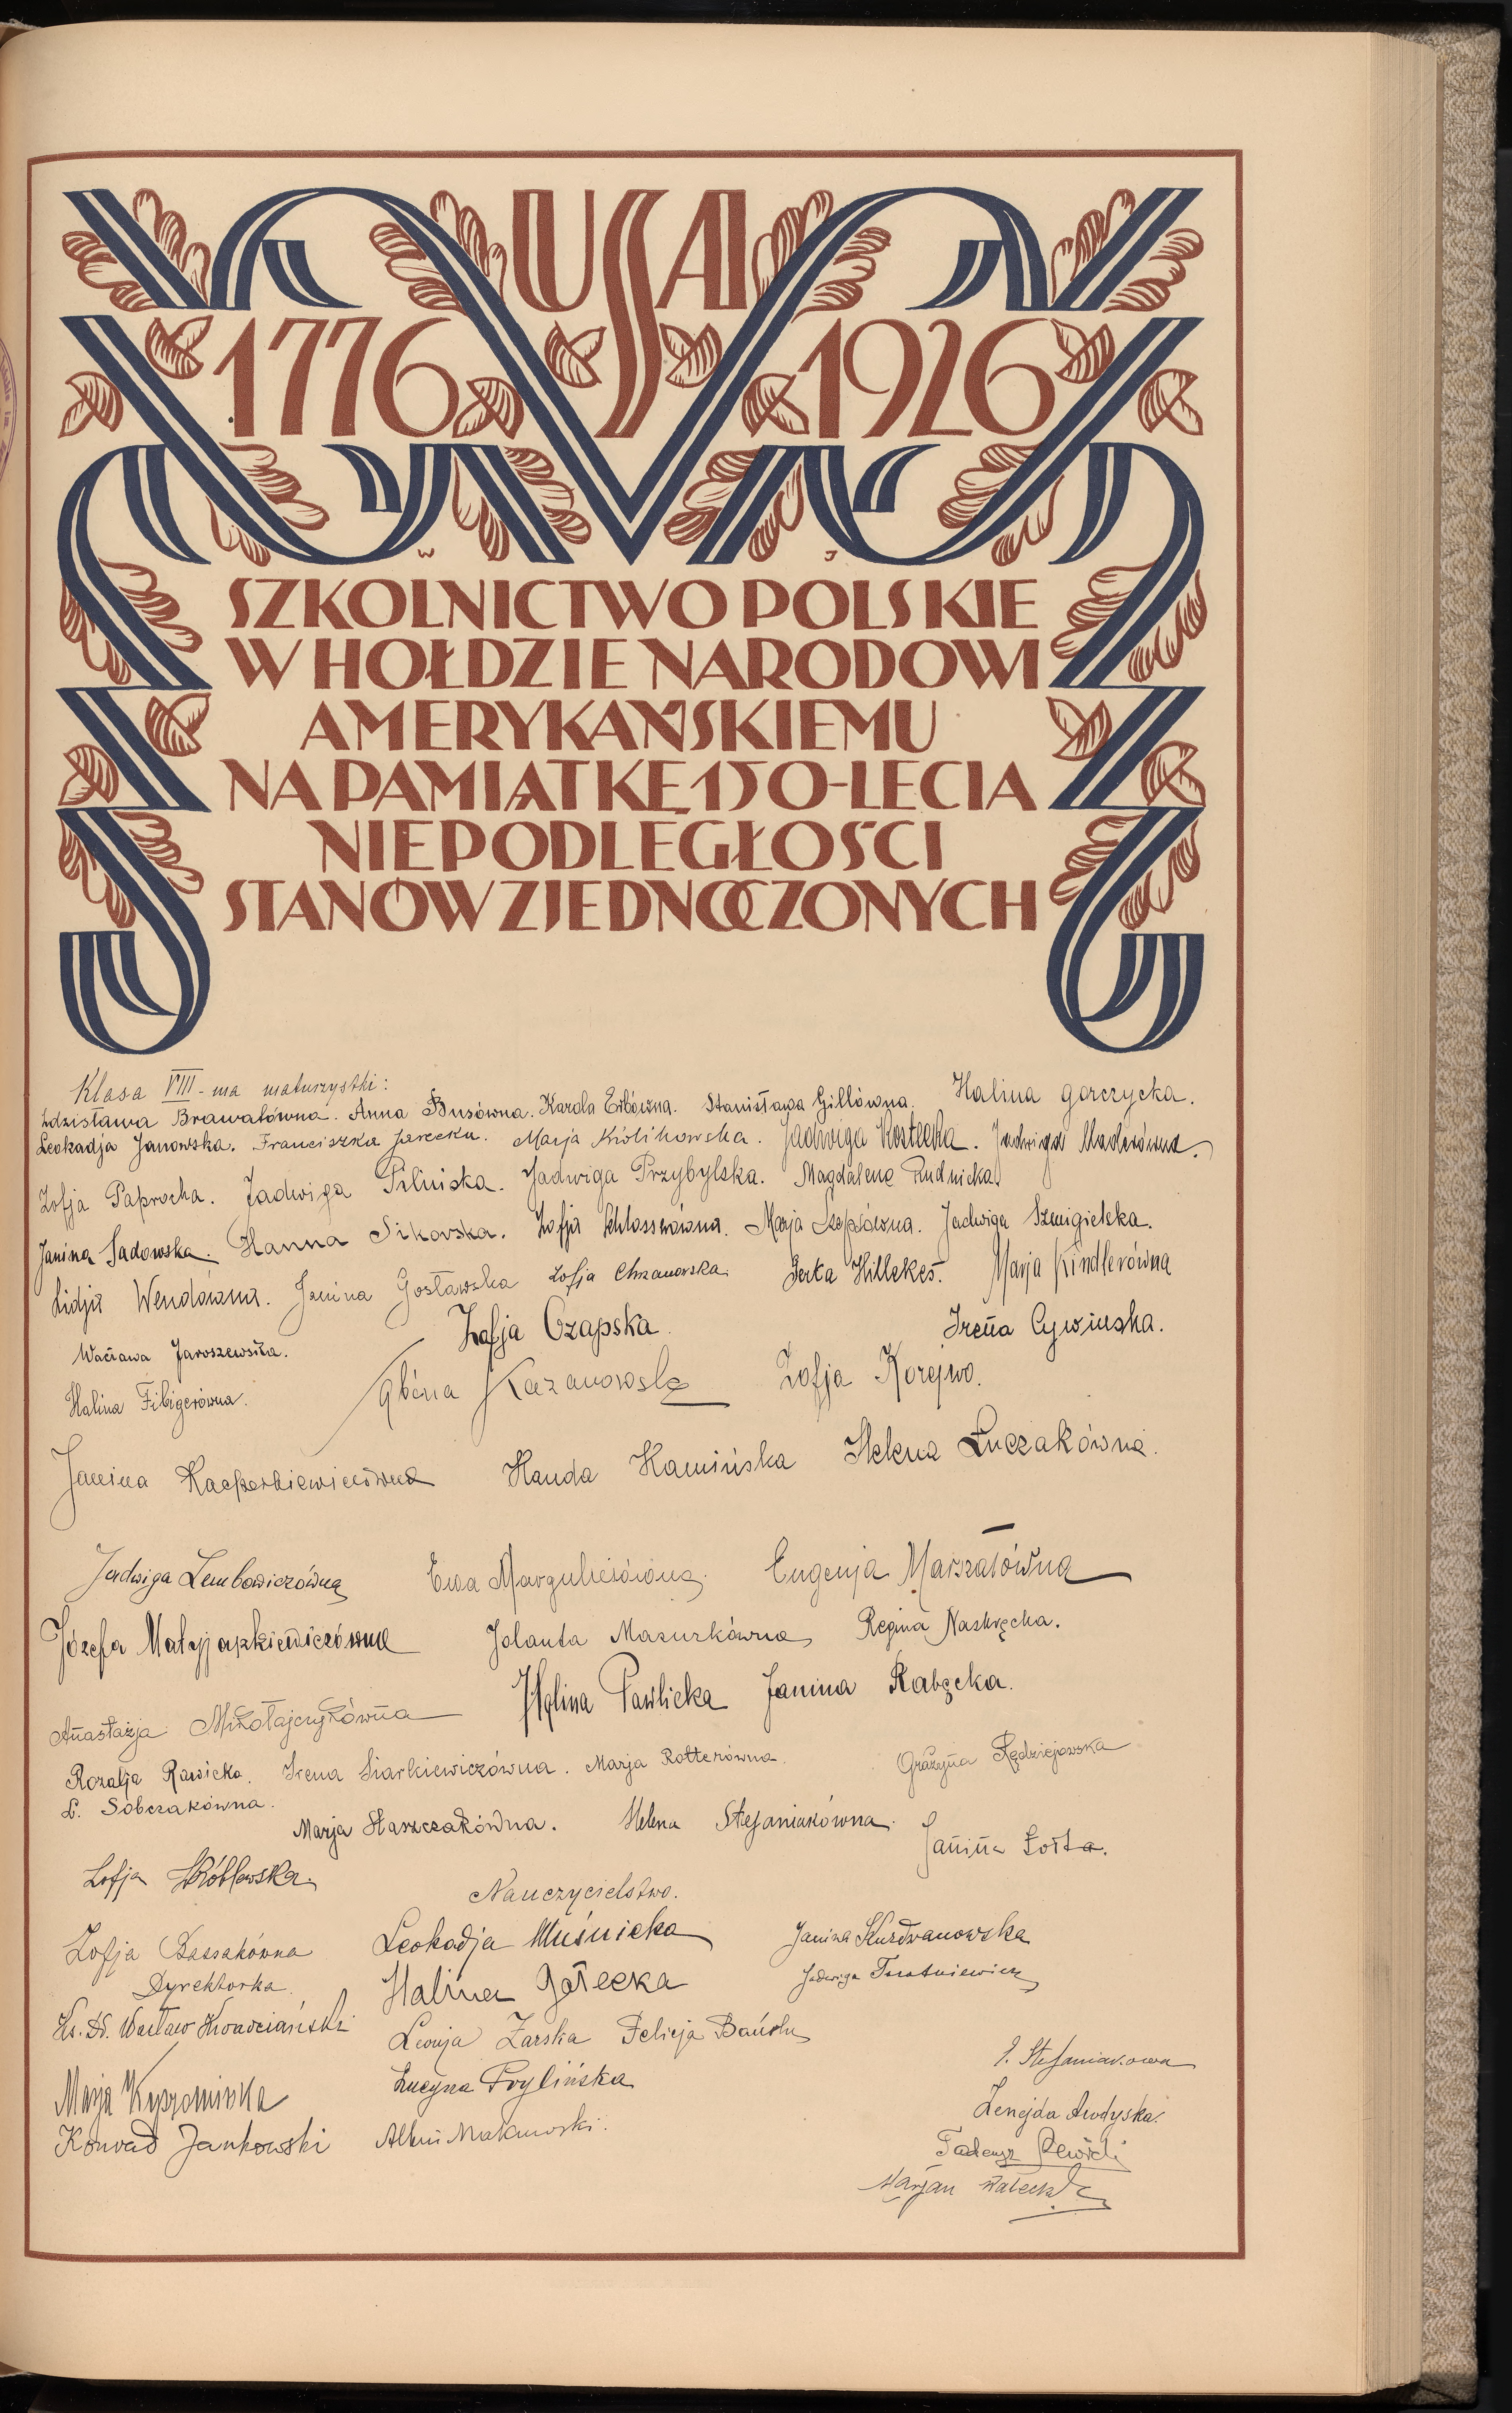 USA
1776 1926
W J
SZKOLNICTWO POLSKIE
W HOŁDZIE NARODOWI
AMERYKAŃSKIEMU
NA PAMIĄTKĘ 150-LECIA
NIEPODLEGŁOŚCI
STANÓW ZJEDNOCZONYCH
Klasa VIII-ma maturzystki:
Zdzisława Brawatówna. Anna Busówna. Karola Erbówna. Stanisława Gillówna. Halina Gorczycka.
Leokadja Janowska. Franciszka Jarecka. Marja Królikowska. Jadwiga Kostecka. Jadwiga Maderówna.
Zofja Paprocka. Jadwiga Pilniska. Jadwiga Przybylska. Magdalena Rudnicka
Janina Sadowska. Hanna Sikorska. Zofja Schlosserówna. Marja Szopówna. Jadwiga Szmigielska.
Lidja Wendówna. Janina Gosławska Zofja Chrzanowska Gerta Hillekes. Marja Kindlerówna
Wacława Jaroszewska. Zofja Czapska Irena Cywińska.
Halina Fibigerówna. Albina Kazanowska Zofja Korejwo.
Janina Kacperkiewiczówna Handa Kamińska Helena Łuczakówna.
Jadwiga Lembowiczówna Ewa Marguliesówna. Eugenja Marszałówna
Józefa Matyjaszkiewiczówna Jolanta Mazurkówna Regina Naskręcka.
Anastazja Mikołajczykówna Halina Pawlicka Janina Rabęcka.
Rozalja Rawicka. Irena Siarkiewiczówna. Marja Rotterówna. Grażyna Rędziejowska
L. Sobczakówna.
Marja Staszczakówna. Helena Stefaniakówna. Janina Żołta.
Zofja Wróblewska.
Nauczycielstwo.
Zofja Sassakówna Leokadja Muśnicka Janina Kurdwanowska
Dyrektorka. Halina Gołecka Jadwiga
Ks. Dr. Wacław Leonja Żarska Felicja
Lucyna S. Stefaniakowa
Marja Zenejda
Konrad Jankowski Albin Makowski. Tadeusz
Marjan Wałecki